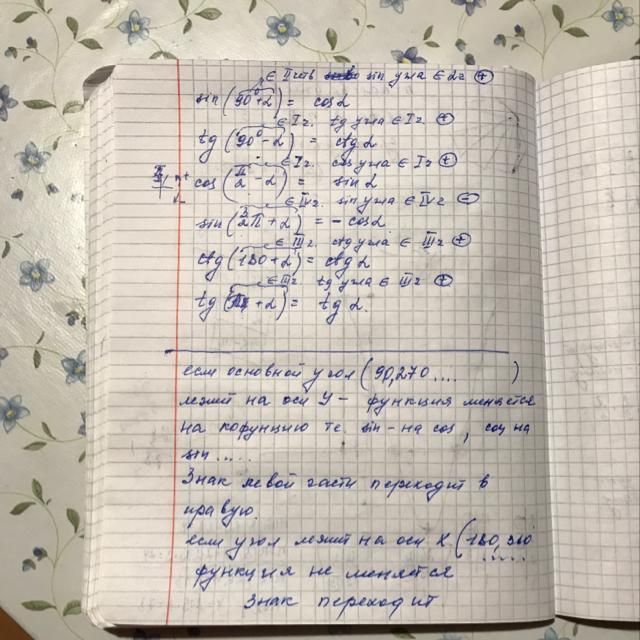 ∈ II четв sin угла ∈ 2г ⊕
sin (90°+α) = cos α
∈ I г. tg угла ∈ I г ⊕
tg (90°-α) = ctg α
∈ I г. cos угла ∈ I г ⊕
cos (π/2 - α) = sin α
∈ IV г. sin угла ∈ IV г ⊖
sin (3/2π + α) = - cos α
∈ III г. ctg угла ∈ III г ⊕
ctg (180+α) = ctg α
∈ III г tg угла ∈ III г ⊕
tg (π + α) = tg α.
если основной угол (90, 270 .... )
лежит на оси У – функция меняется
на кофунцию те. sin - на cos, cos на
sin .....
Знак левой части переходит в
правую
если угол лежит на оси X (180, 360
.....
функция не меняется
Знак переходит.